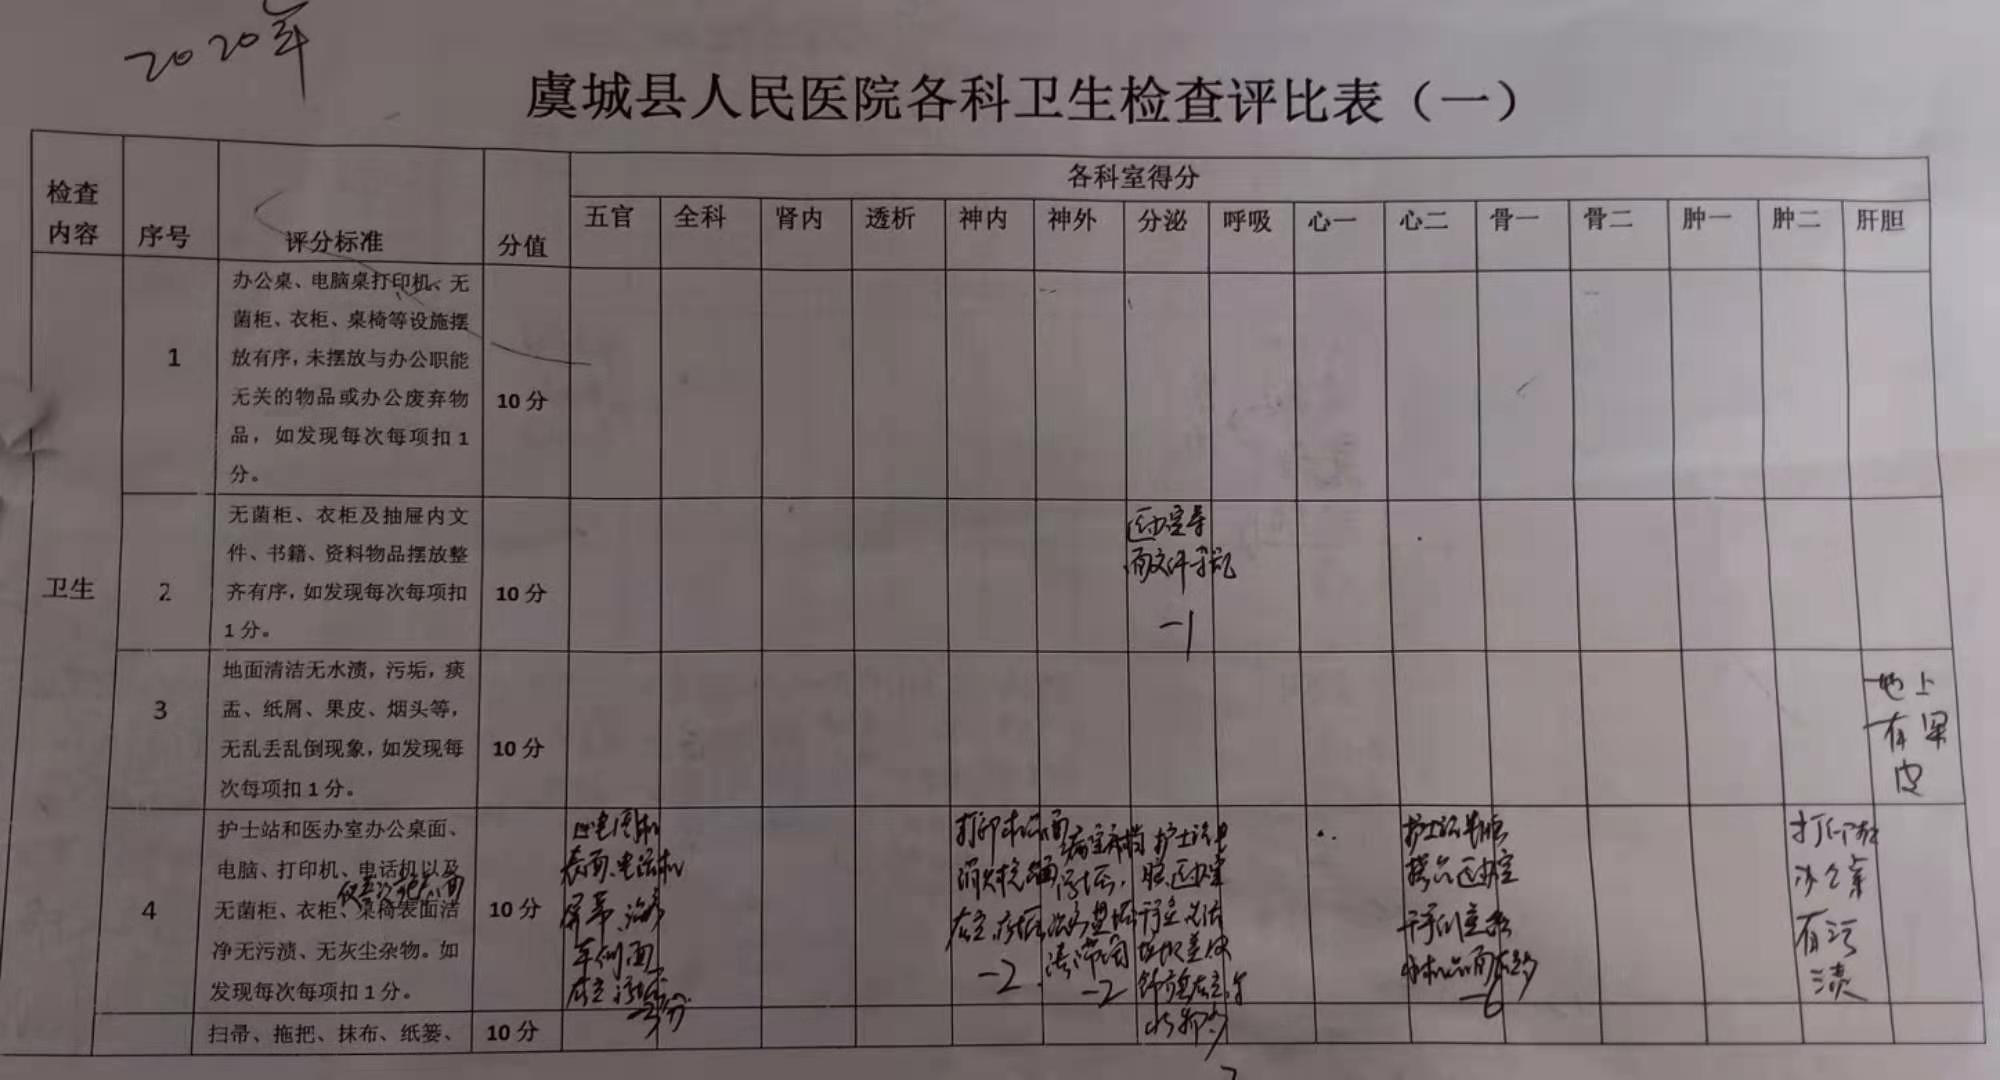 2020年
虞城县人民医院各科卫生检查评比表（一）
检查
内容
序号
评分标准
分值
各科室得分
五官 全科 肾内 透析 神内 神外 分泌 呼吸 心一 心二 骨一 骨二 肿一 肿二 肝胆
卫生
1
办公桌、电脑桌打印机、无
菌柜、衣柜、桌椅等设施摆
放有序，未摆放与办公职能
无关的物品或办公废弃物
品，如发现每次每项扣1
分。
10分
2
无菌柜、衣柜及抽屉内文
件、书籍、资料物品摆放整
齐有序，如发现每次每项扣
1分。
10分
-1
3
地面清洁无水渍，污垢，痰
盂、纸屑、果皮、烟头等，
无乱丢乱倒现象，如发现每
次每项扣1分。
10分
地上
有果
皮
4
护士站和医办室办公桌面、
电脑、打印机、电话机以及
无菌柜、衣柜、桌椅表面洁
净无污渍、无灰尘杂物。如
发现每次每项扣1分。
10分
表面、电话机
屏幕、治疗
车侧面
-3分
-2
-2
护士站电
脑、医办室
-6
办公桌
有污
渍
扫帚、拖把、抹布、纸篓、
10分